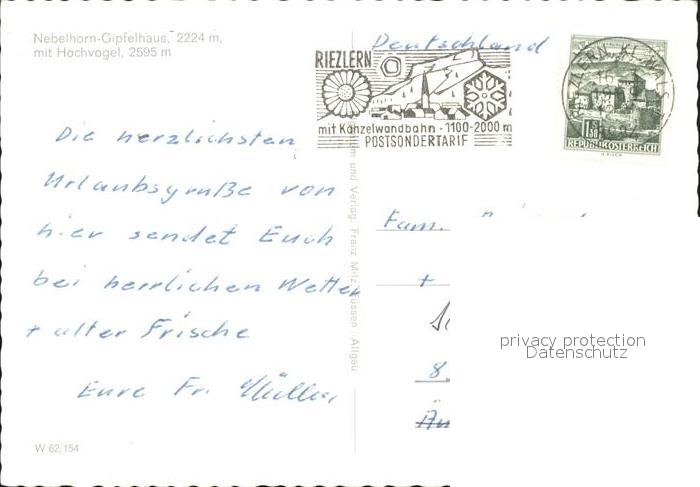 Nebelhorn-Gipfelhaus, 2224 m,
mit Hochvogel, 2595 m
Deutschland
RIEZLERN
mit Kanzelwandbahn - 1100-2000 m
POSTSONDERTARIF
1.50
REPUBLIK ÖSTERREICH
Die herzlichsten
Urlaubsgrüße von
hier sendet Euch
bei herrlichen Wetter
+ alter Frische
Eure Fr. Müller
und Verlag Franz Milz Füssen Allgäu
Fam.
+
8
privacy protection
Datenschutz
W 62/154